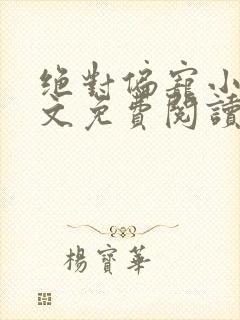 絕對偏寵小
文免費閱讀
楊寶華